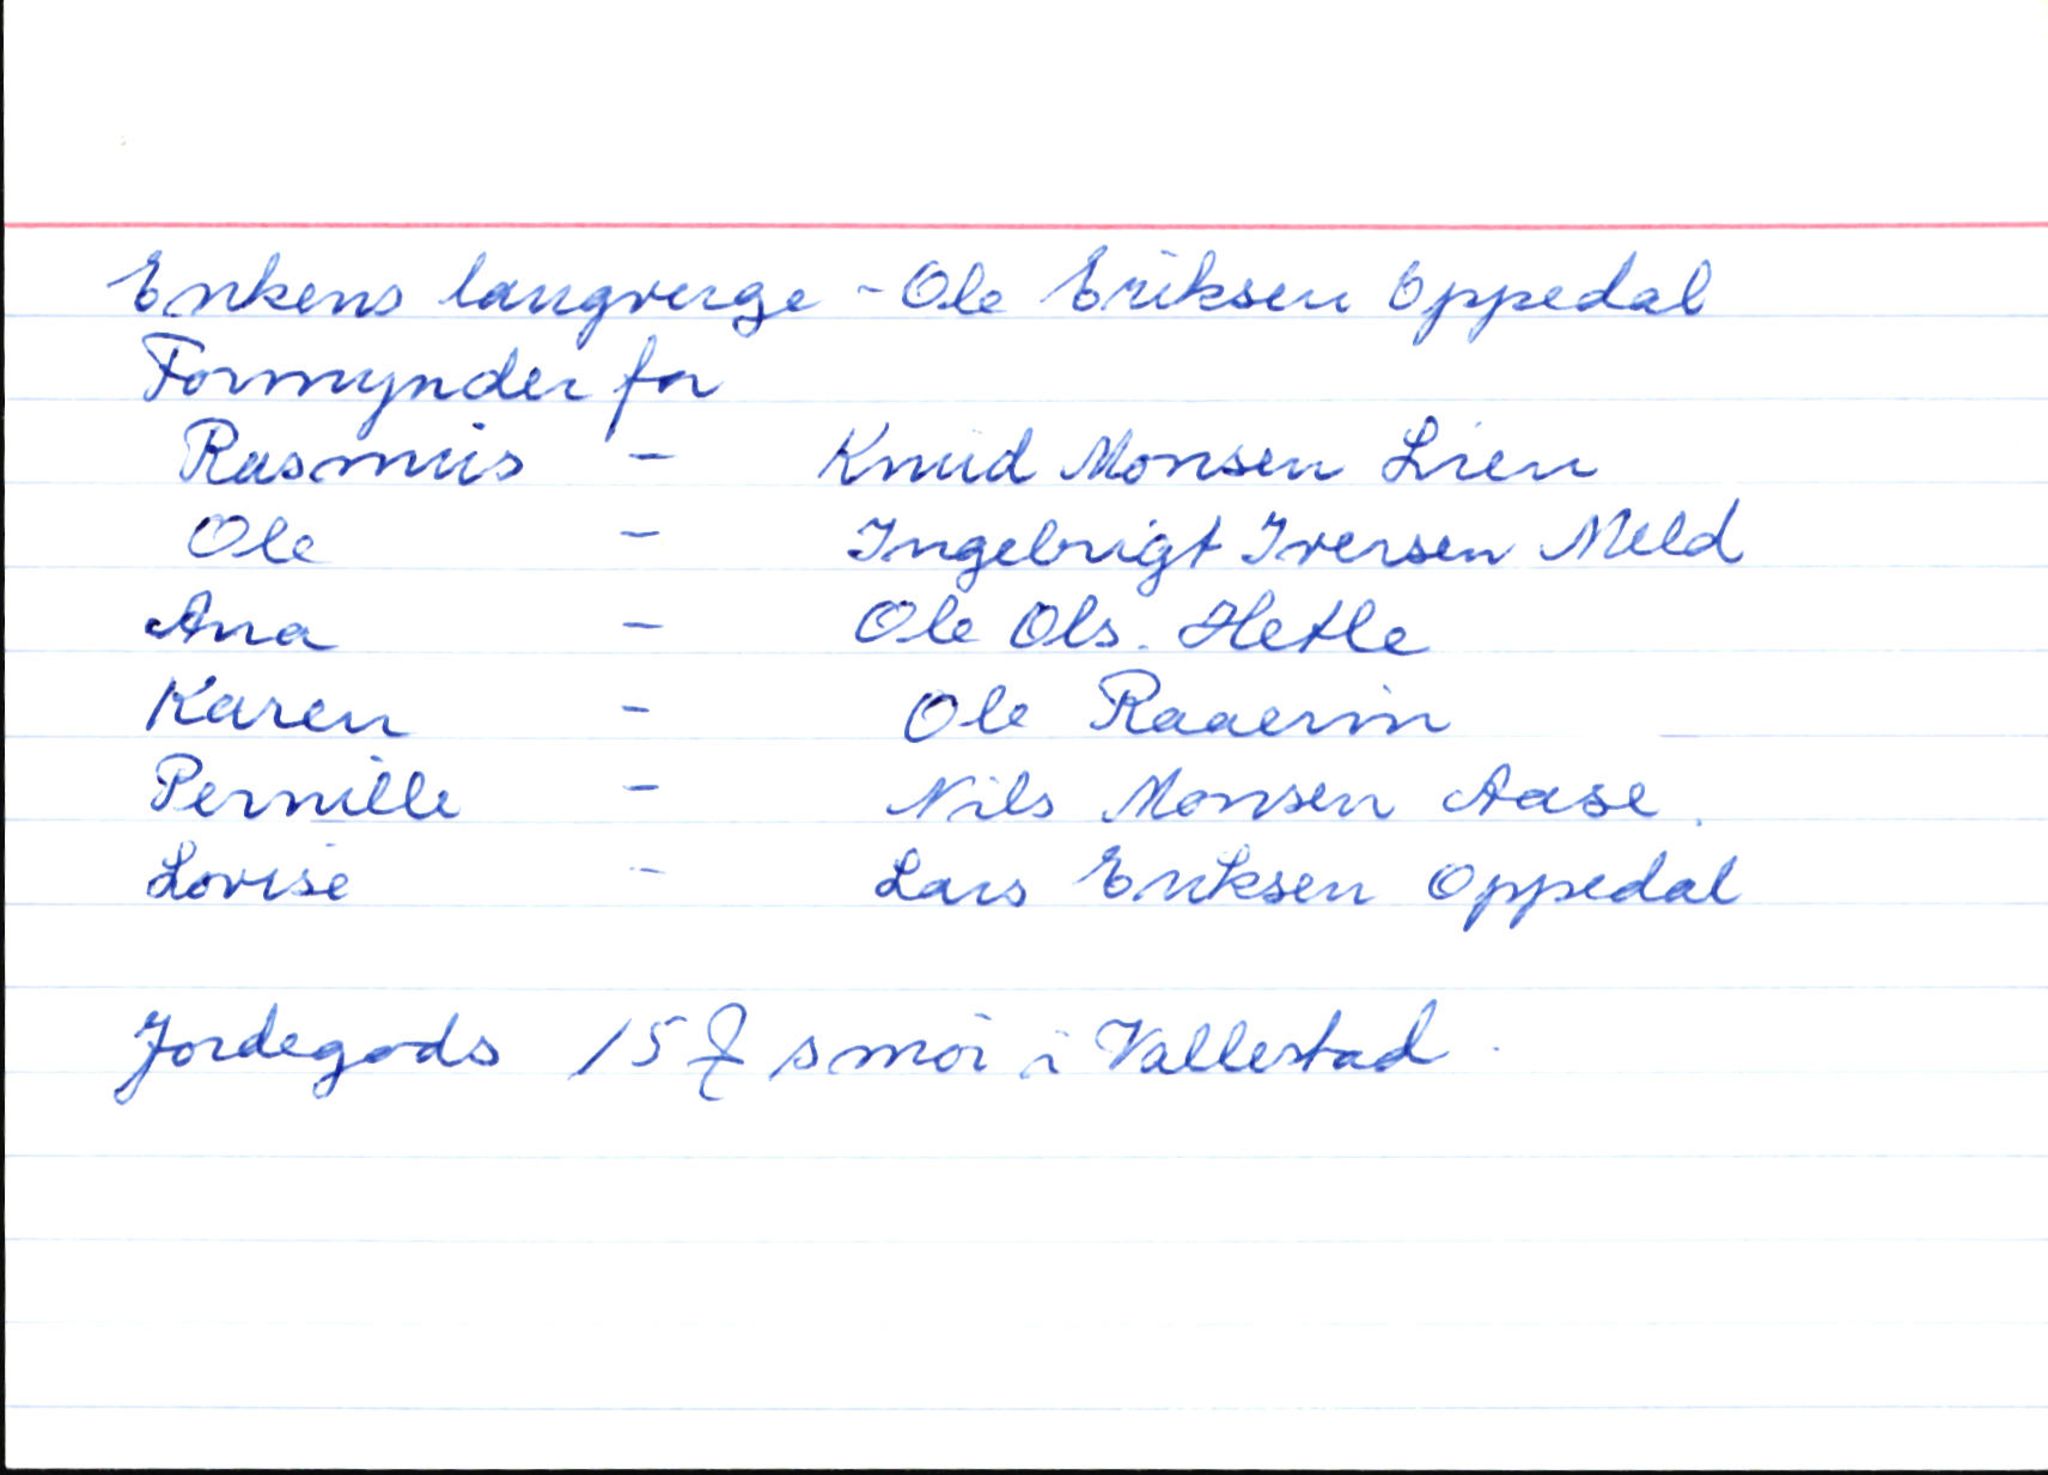 Enkens laugverge - Ole Eriksen Oppedal
Formynder for
Rasmus - Knud Monsen Lien
Ole - Ingebrigt Iversen Meld
Ana - Ole Ols. Hetle
Karen - Ole Raaerim
Pernille - Nils Monsen Aase.
Lovise - Lars Eriksen Oppedal
Jordegods 15 smör i Vallestad.